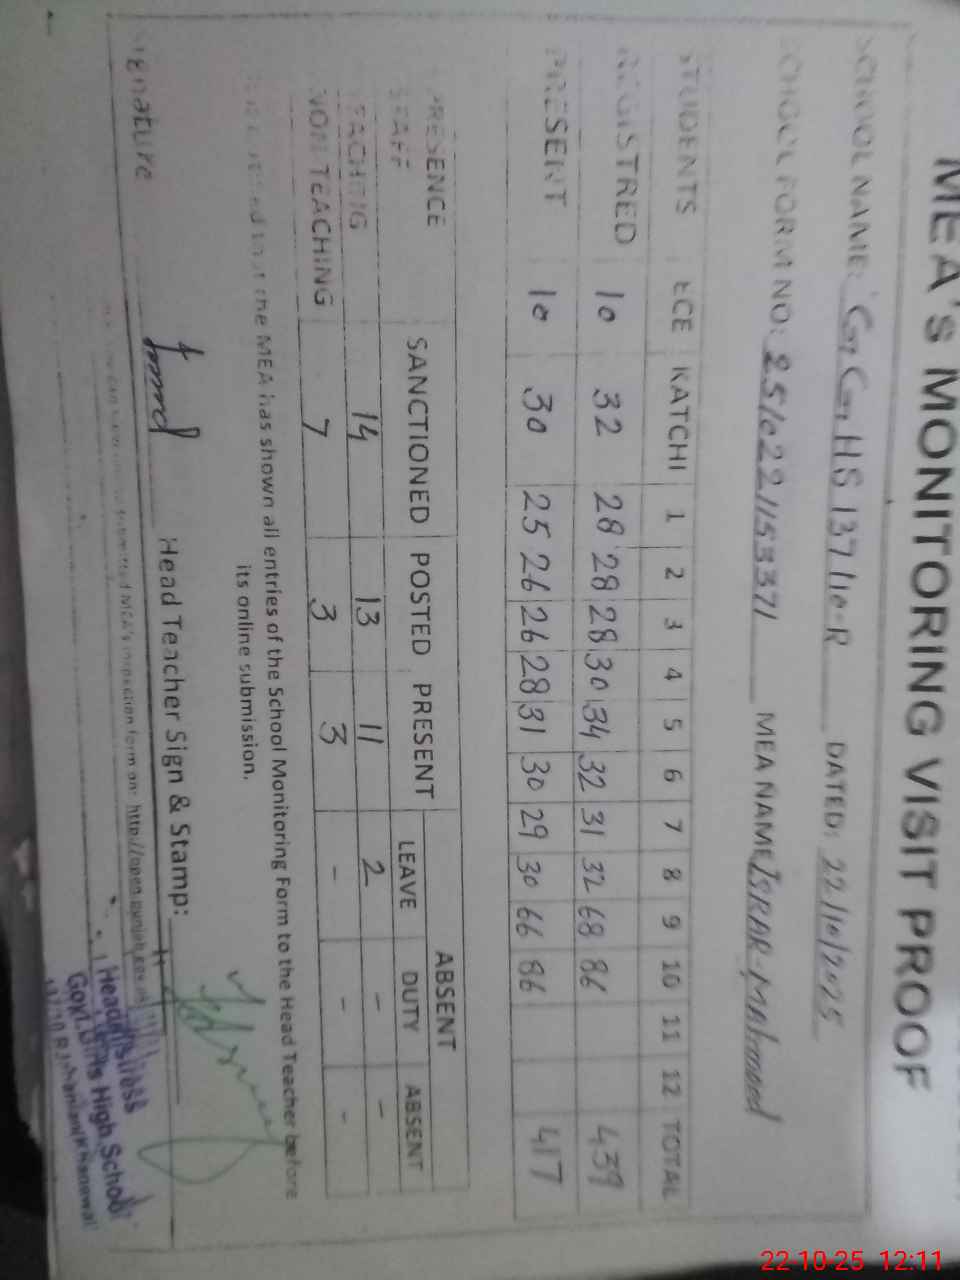 MEA's MONITORING VISIT PROOF
SCHOOL NAME: GGHS 137/10-R DATED: 22/10/2025
SCHOOL FORM NO: 251022115371 MEA NAME ISRAR-Mahmood
STUDENTS ECE KATCHI 1 2 3 4 5 6 7 8 9 10 11 12 TOTAL
REGISTRED 10 32 28 28 28 30 34 32 31 32 68 86 439
PRESENT 10 30 25 26 26 28 31 30 29 30 66 86 417
PRESENCE SANCTIONED POSTED PRESENT ABSENT
STAFF LEAVE DUTY ABSENT
TEACHING 14 13 11 2 - -
NON TEACHING 7 3 3 - - -
the MEA has shown all entries of the School Monitoring Form to the Head Teacher before
its online submission.
Signature Head Teacher Sign & Stamp:
submitted MEA's inspection form on: http://open.punjab.gov.pk
Headmistress
Govt. Girls High School
137/10 R Jahanian (Khanewal)
22-10-25 12:11